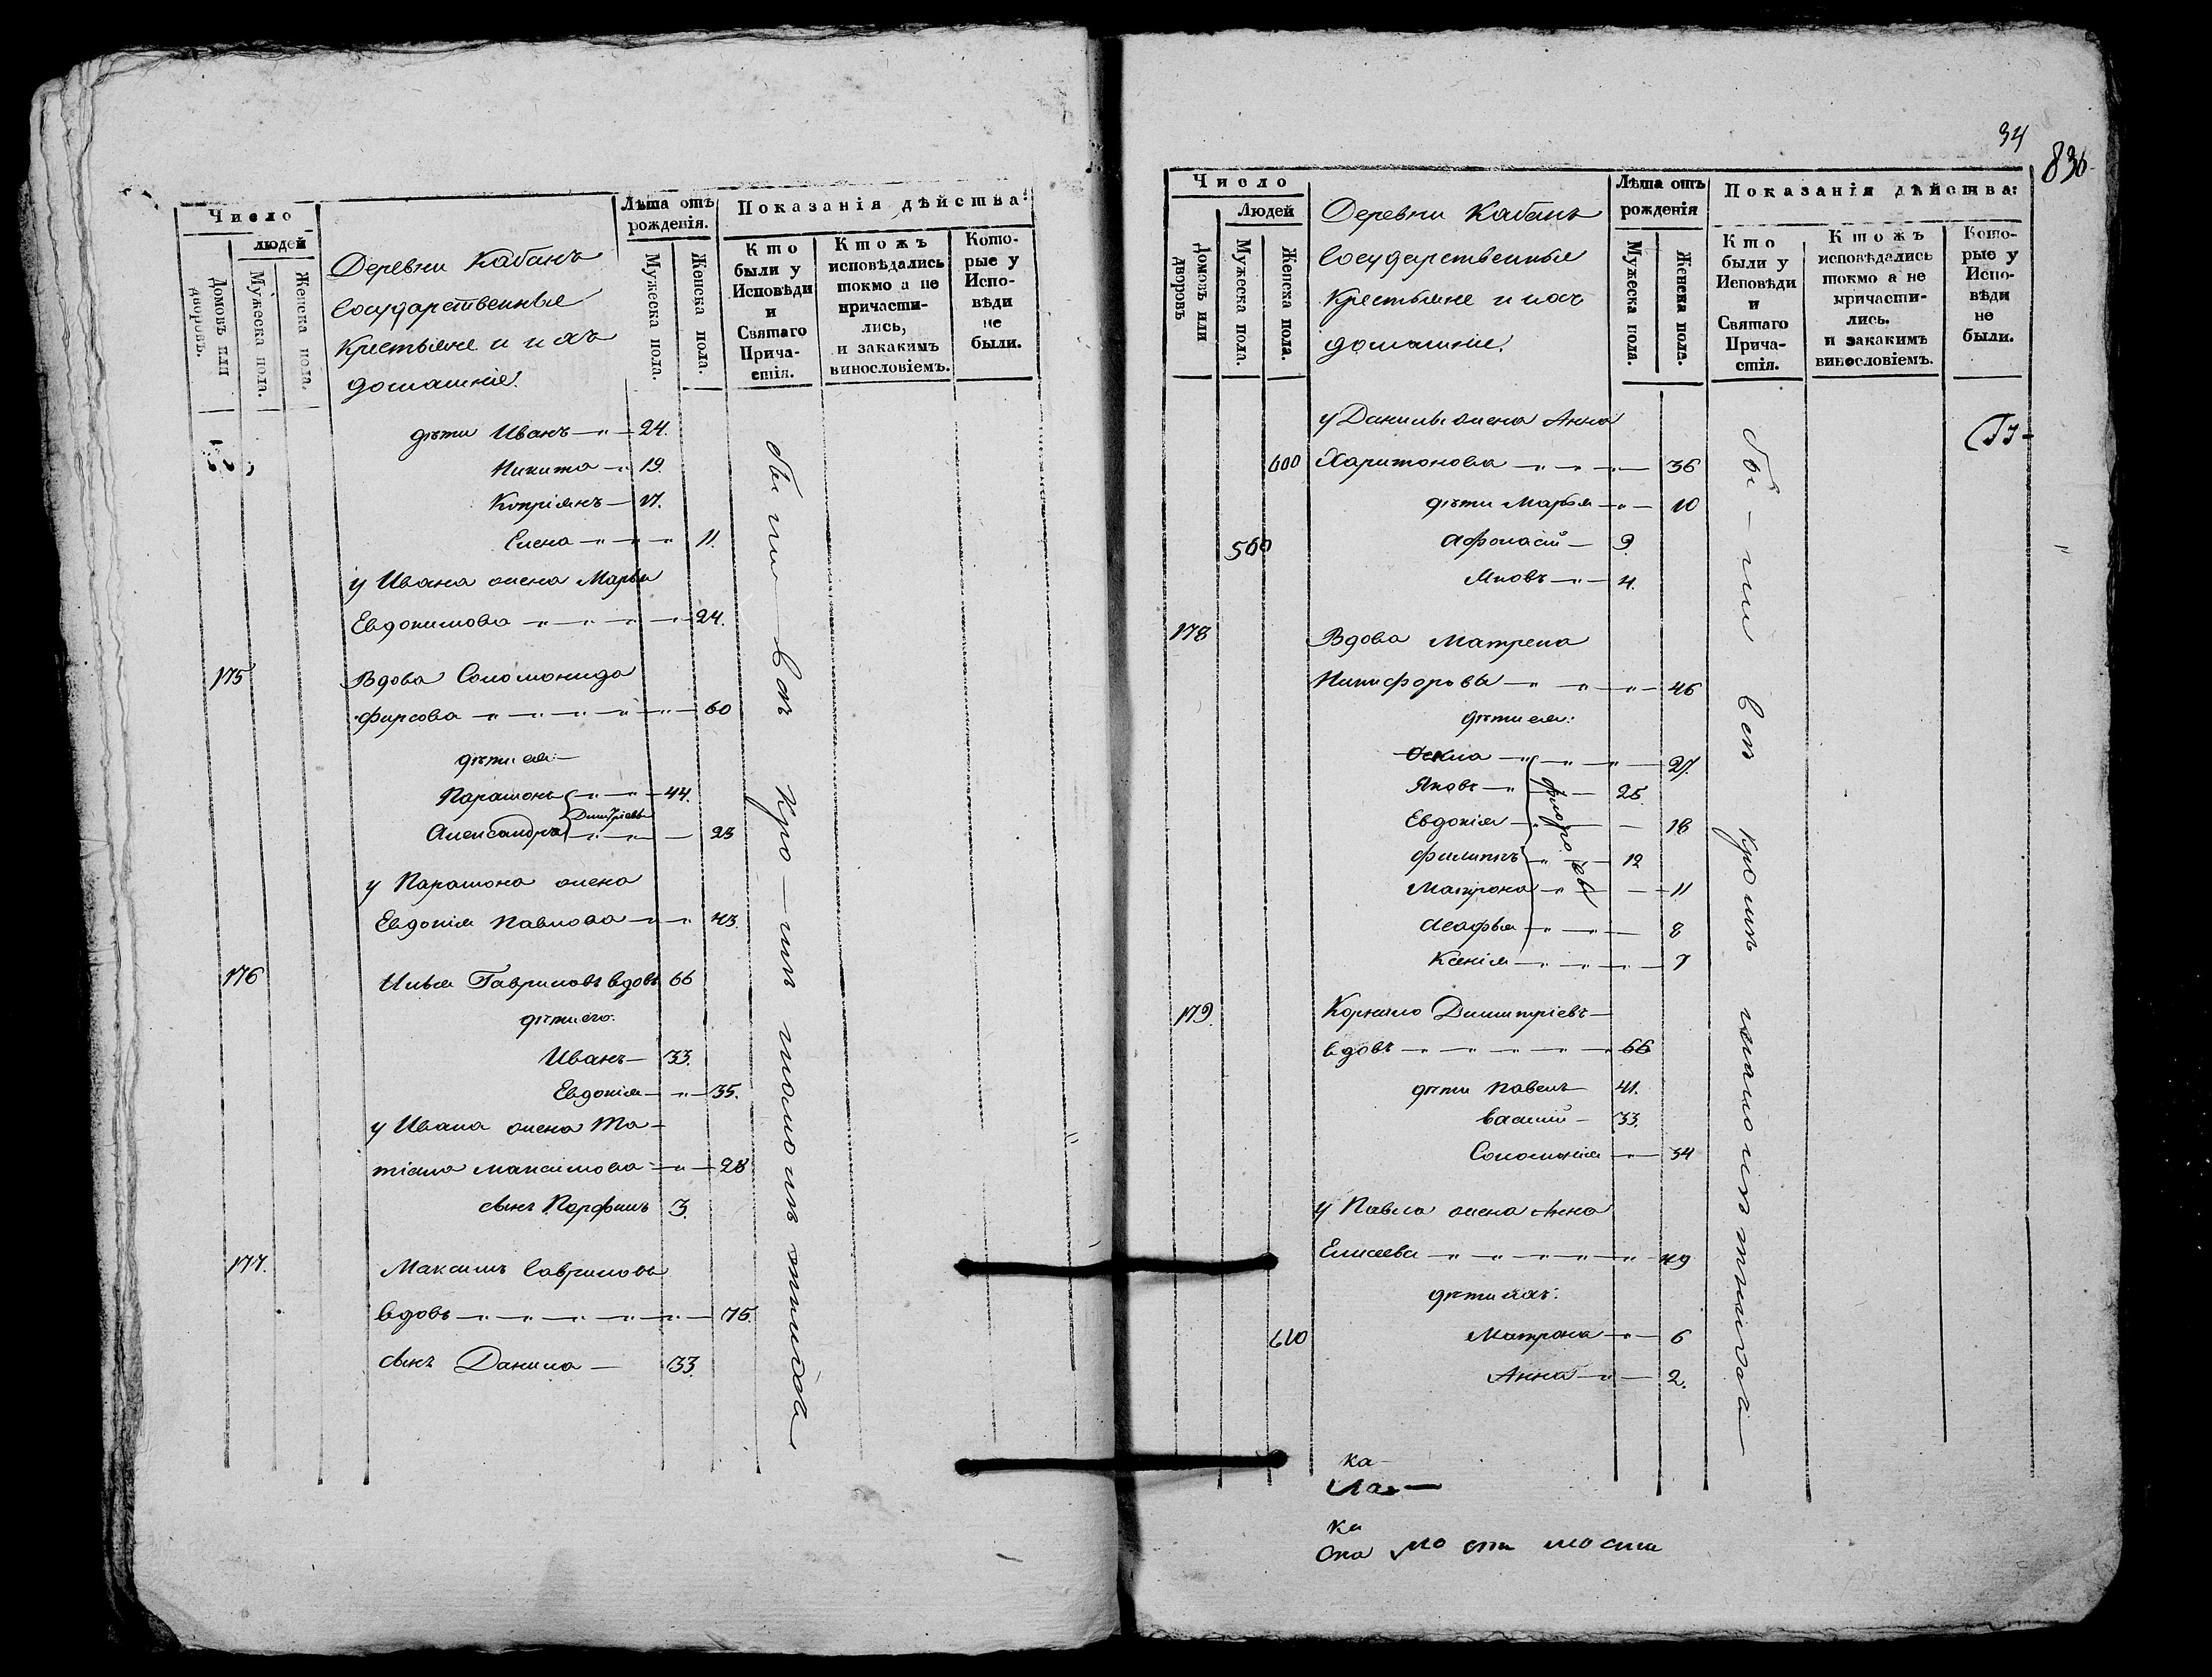 Число
людей
Домовъ или дворовъ.
Мужеска пола.
Женска пола.
Деревни Кабанъ
Государственные
Крестьяне и ихъ
домашніе.
Лѣта отъ
рожденія.
Мужеска пола.
Женска пола.
Показанія дѣйства:
Кто
были у
Исповѣди
и
Святаго
Прича-
стія.
Ктожъ
исповѣдались
токмо а не
причасти-
лись,
и закакимъ
винословіемъ.
Кото-
рые у
Испо-
вѣди
не
были.
дѣти Иванъ 24.
Никита 19.
Кипріянъ 17.
Елена 11.
у Ивана жена Марья
Евдокимова 24.
175 Вдова Соломонида
Фирсова 60
дѣти ея:
Парамонъ 44.
Димитріевы
Александра 23
у Парамона жена
Евдокія Павлова 43.
176 Илья Гавриловъ вдовъ 66
дѣти его:
Иванъ 33.
Евдокія 35.
у Ивана жена Та-
тіана Максимова 28
сынъ Парфенъ 3.
177. Максимъ Гавриловъ
вдовъ 75.
сынъ Данила 33.
бы ли всѣ кро мѣ малолѣтнихъ
34
836
Число
Людей
Домовъ или дворовъ
Мужеска пола.
Женска пола.
Деревни Кабанъ
Государственные
Крестьяне и ихъ
домашніе.
Лѣта отъ
рожденія
Мужеска пола.
Женска пола.
Показанія дѣйства:
Кто
были у
Исповѣди
и
Святаго
Прича-
стія.
Ктожъ
исповѣдались
токмо а не
причасти-
лись.
и закакимъ
винословіемъ.
Кото-
рые у
Испо-
вѣди
не
были.
у Данилы жена Анна
600 Харитонова 36
дѣти Марья 10
560 Афонасій 9.
Іяковъ 4.
178 Вдова Матрена
Никифорова 46
дѣти ея:
Фекла 27.
Яковъ 25.
Евдокія 18
Филипъ 12
Матрона 11
Агафья 8
Ксенія 7
Федоровы
179. Корнило Димитріевъ
вдовъ 66
дѣти Павелъ 41.
Василій 33.
Соломонія 34
у Павла жена Анна
Елисеева 49
дѣти ихъ:
610 Матрона 6
Анна 2.
бы ли всѣ кро мѣ малолѣтнихъ
ка
ка